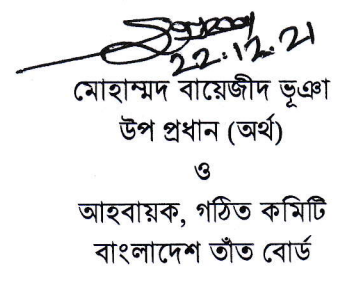 ২২.১২.২১
মোহাম্মদ বায়েজীদ ভূঞা
উপ প্রধান (অর্থ)
ও
আহবায়ক, গঠিত কমিটি
বাংলাদেশ তাঁত বোর্ড